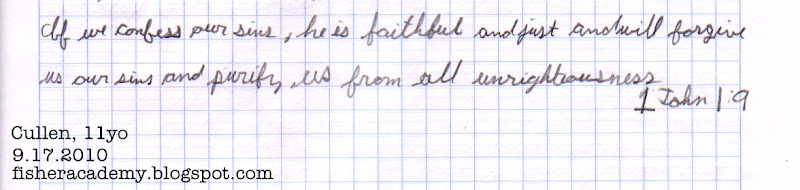 If we confess our sins, he is faithful and just and will forgive
us our sins and purify us from all unrighteousness
1 John 1:9
Cullen, 11yo
9.17.2010
fisheracademy.blogspot.com